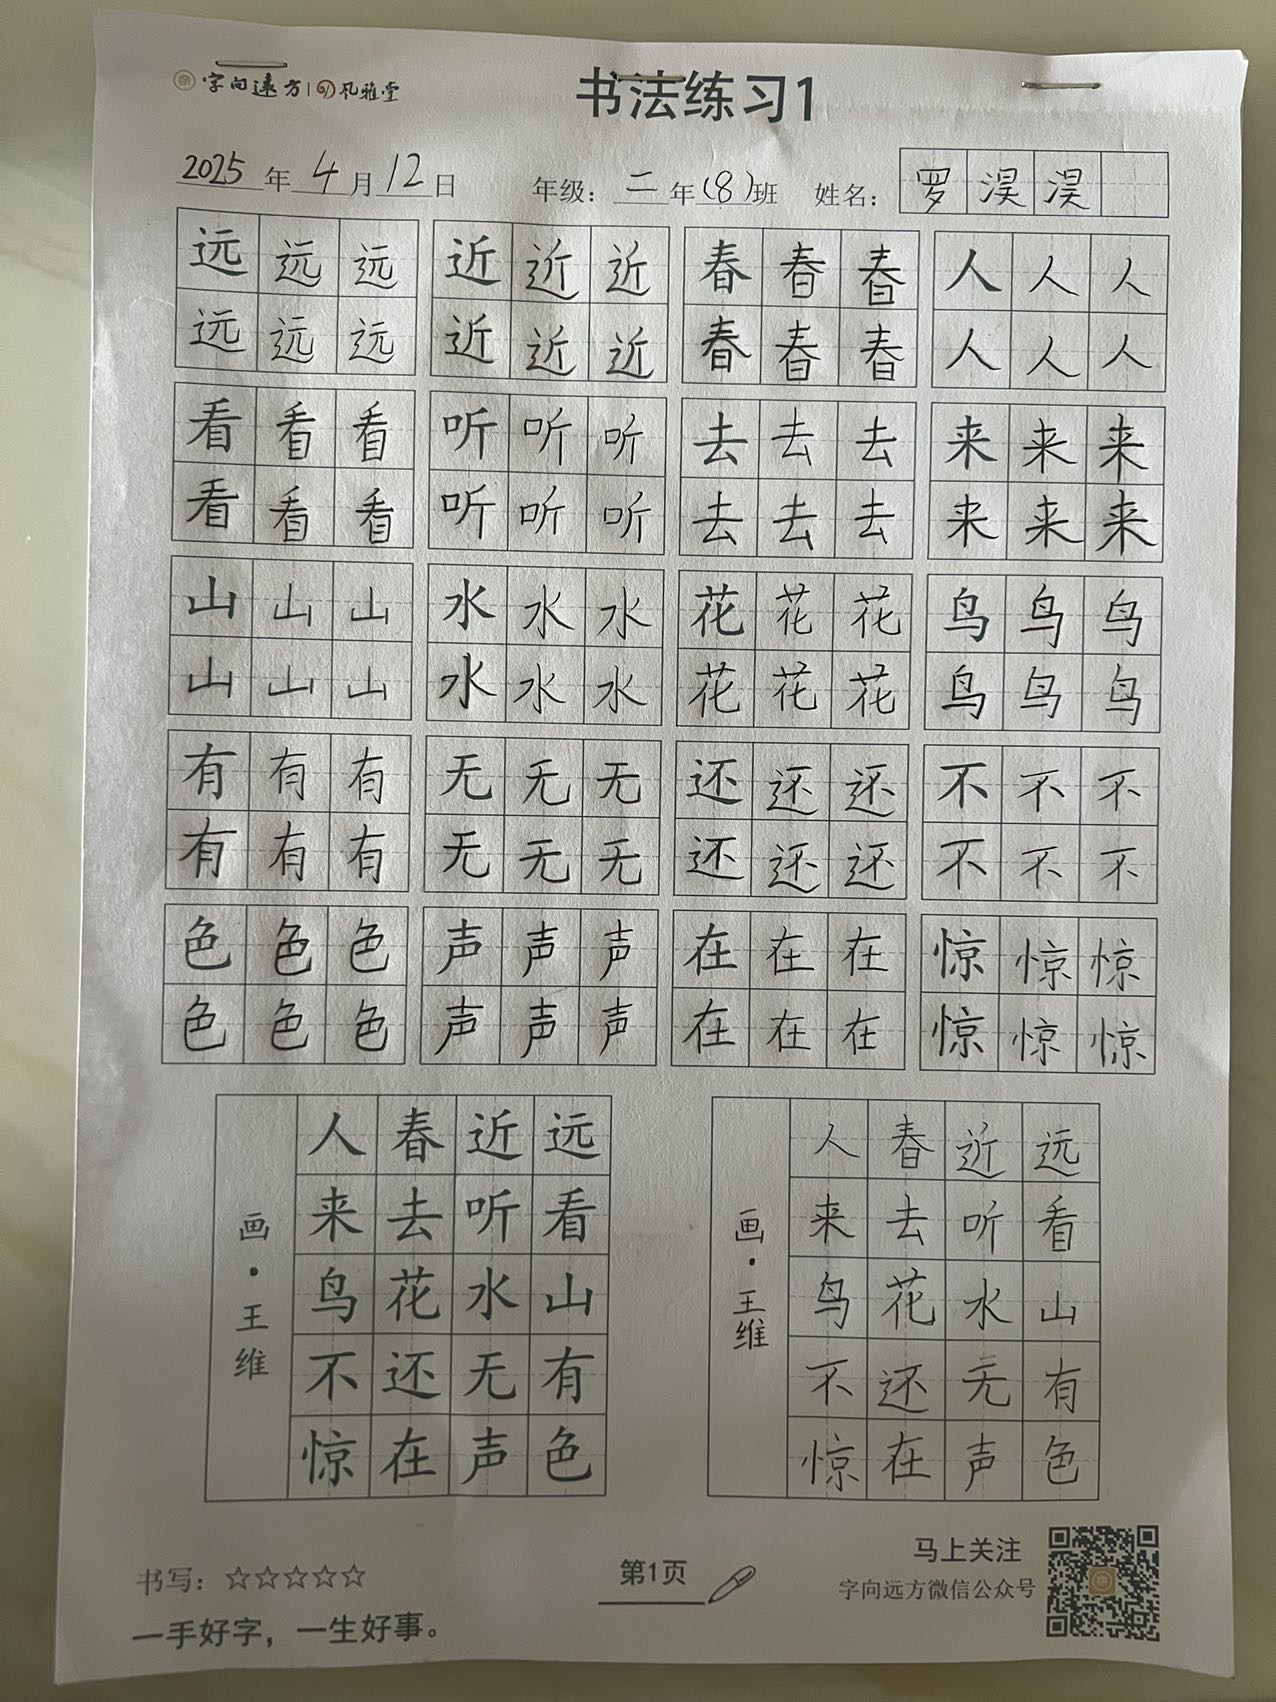 字向远方 | 风雅堂
书法练习1
2025年4月12日 年级：二年(8)班 姓名：罗淏淏
远远远 近近近 春春春 人人人
远远远 近近近 春春春 人人人
看看看 听听听 去去去 来来来
看看看 听听听 去去去 来来来
山山山 水水水 花花花 鸟鸟鸟
山山山 水水水 花花花 鸟鸟鸟
有有有 无无无 还还还 不不不
有有有 无无无 还还还 不不不
色色色 声声声 在在在 惊惊惊
色色色 声声声 在在在 惊惊惊
远看山有色
近听水无声
春去花还在
人来鸟不惊
画·王维
远看山有色
近听水无声
春去花还在
人来鸟不惊
画·王维
书写：☆☆☆☆☆
一手好字，一生好事。
第1页
马上关注
字向远方微信公众号